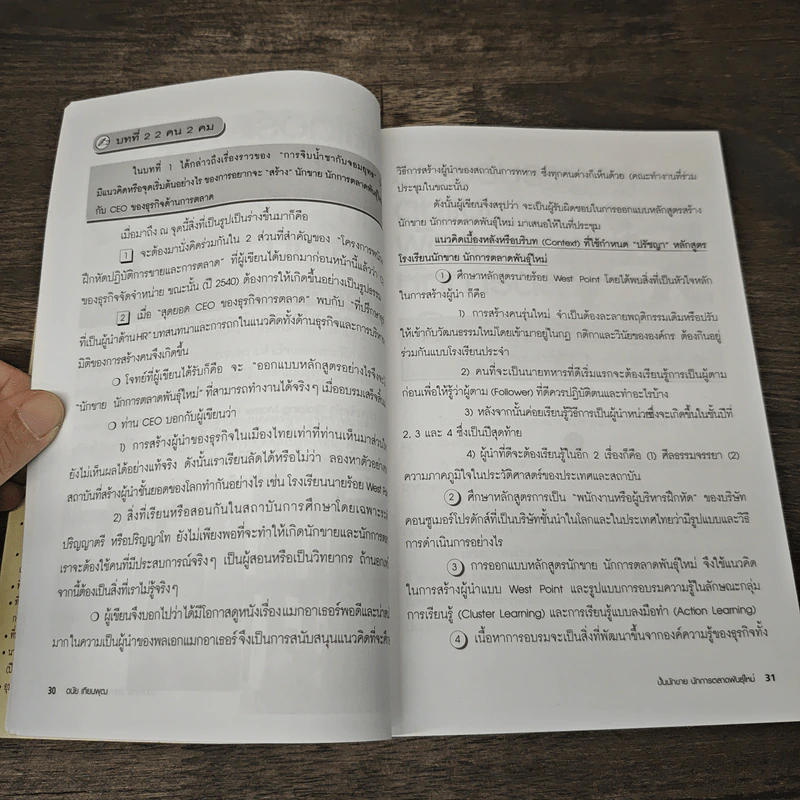 บทที่ 2 2 คน 2 คม
ในบทที่ 1 ได้กล่าวถึงเรื่องราวของ "การจิบน้ำชากับจอมยุทธ"
มีแนวคิดหรือจุดเริ่มต้นอย่างไร ของการอยากจะ "สร้าง" นักขาย นักการตลาดพันธุ์ใหม่
กับ CEO ของธุรกิจด้านการตลาด
เมื่อมาถึง ณ จุดนี้สิ่งที่เป็นรูปเป็นร่างขึ้นมาก็คือ
1 จะต้องมานั่งคิดร่วมกันใน 2 ส่วนที่สำคัญของ "โครงการ
ฝึกหัดปฏิบัติการขายและการตลาด" ที่ผู้เขียนได้บอกมาก่อนหน้านี้แล้วว่า
ของธุรกิจจัดจำหน่าย ขณะนั้น (ปี 2540) ต้องการให้เกิดขึ้นอย่างเป็นรูปธรรม
2 เมื่อ "สุดยอด CEO ของธุรกิจการตลาด" พบกับ "ที่ปรึกษา
ที่เป็นผู้นำด้าน HR" บทสนทนาและการถกในแนวคิดทั้งด้านธุรกิจและการบริหาร
มิติของการสร้างคนจึงเกิดขึ้น
❍ โจทย์ที่ผู้เขียนได้รับก็คือ จะ "ออกแบบหลักสูตรอย่างไรจึงจะ
"นักขาย นักการตลาดพันธุ์ใหม่" ที่สามารถทำงานได้จริงๆ เมื่ออบรมเสร็จสิ้น
❍ ท่าน CEO บอกกับผู้เขียนว่า
1) การสร้างผู้นำของธุรกิจในเมืองไทยเท่าที่ท่านเห็นมาส่วนใหญ่
ยังไม่เห็นผลได้อย่างแท้จริง ดังนั้นเราเรียนลัดได้หรือไม่ว่า ลองหาตัวอย่าง
สถาบันที่สร้างผู้นำชั้นยอดของโลกทำกันอย่างไร เช่น โรงเรียนนายร้อย West Point
2) สิ่งที่เรียนหรือสอนกันในสถาบันการศึกษาโดยเฉพาะระดับ
ปริญญาตรี หรือปริญญาโท ยังไม่เพียงพอที่จะทำให้เกิดนักขายและนักการตลาด
เราจะต้องใช้คนที่มีประสบการณ์จริงๆ เป็นผู้สอนหรือเป็นวิทยากร ถ้านอกเหนือ
จากนี้ต้องเป็นสิ่งที่เราไม่รู้จริงๆ
❍ ผู้เขียนจึงบอกไปว่าได้มีโอกาสดูหนังเรื่องแมกอาเธอร์พอดีและน่าสนใจ
มากในความเป็นผู้นำของพลเอกแมกอาเธอร์ จึงเป็นการสนับสนุนแนวคิดที่จะศึกษา
30 ดนัย เทียนพุฒ
วิธีการสร้างผู้นำของสถาบันการทหาร ซึ่งทุกคนต่างก็เห็นด้วย (คณะทำงานที่ร่วม
ประชุมในขณะนั้น)
ดังนั้นผู้เขียนจึงสรุปว่า จะเป็นผู้รับผิดชอบในการออกแบบหลักสูตรสร้าง
นักขาย นักการตลาดพันธุ์ใหม่ มาเสนอให้ในที่ประชุม
แนวคิดเบื้องหลังหรือบริบท (Context) ที่ใช้กำหนด "ปรัชญา" หลักสูตร
โรงเรียนนักขาย นักการตลาดพันธุ์ใหม่
1 ศึกษาหลักสูตรนายร้อย West Point โดยได้พบสิ่งที่เป็นหัวใจหลัก
ในการสร้างผู้นำ ก็คือ
1) การสร้างคนรุ่นใหม่ จำเป็นต้องละลายพฤติกรรมเดิมหรือปรับ
ให้เข้ากับวัฒนธรรมใหม่โดยเข้ามาอยู่ในกฎ กติกาและวินัยขององค์กร ต้องกินอยู่
ร่วมกันแบบโรงเรียนประจำ
2) คนที่จะเป็นนายทหารที่ดีเริ่มแรกจะต้องเรียนรู้การเป็นผู้ตาม
ก่อนเพื่อให้รู้ว่าผู้ตาม (Follower) ที่ดีควรปฏิบัติตนและทำอะไรบ้าง
3) หลังจากนั้นค่อยเรียนรู้วิธีการเป็นผู้นำหน่วยซึ่งจะเกิดขึ้นในชั้นปีที่
2, 3 และ 4 ซึ่งเป็นปีสุดท้าย
4) ผู้นำที่ดีจะต้องเรียนรู้ในอีก 2 เรื่องก็คือ (1) ศีลธรรมจรรยา (2)
ความภาคภูมิใจในประวัติศาสตร์ของประเทศและสถาบัน
2 ศึกษาหลักสูตรการเป็น "พนักงานหรือผู้บริหารฝึกหัด" ของบริษัท
คอนซูเมอร์โปรดักส์ที่เป็นบริษัทชั้นนำในโลกและในประเทศไทยว่ามีรูปแบบและวิธี
การดำเนินการอย่างไร
3 การออกแบบหลักสูตรนักขาย นักการตลาดพันธุ์ใหม่ จึงใช้แนวคิด
ในการสร้างผู้นำแบบ West Point และรูปแบบการอบรมความรู้ในลักษณะกลุ่ม
การเรียนรู้ (Cluster Learning) และการเรียนรู้แบบลงมือทำ (Action Learning)
4 เนื้อหาการอบรมจะเป็นสิ่งที่พัฒนาขึ้นจากองค์ความรู้ของธุรกิจทั้ง
ปั้นนักขาย นักการตลาดพันธุ์ใหม่ 31